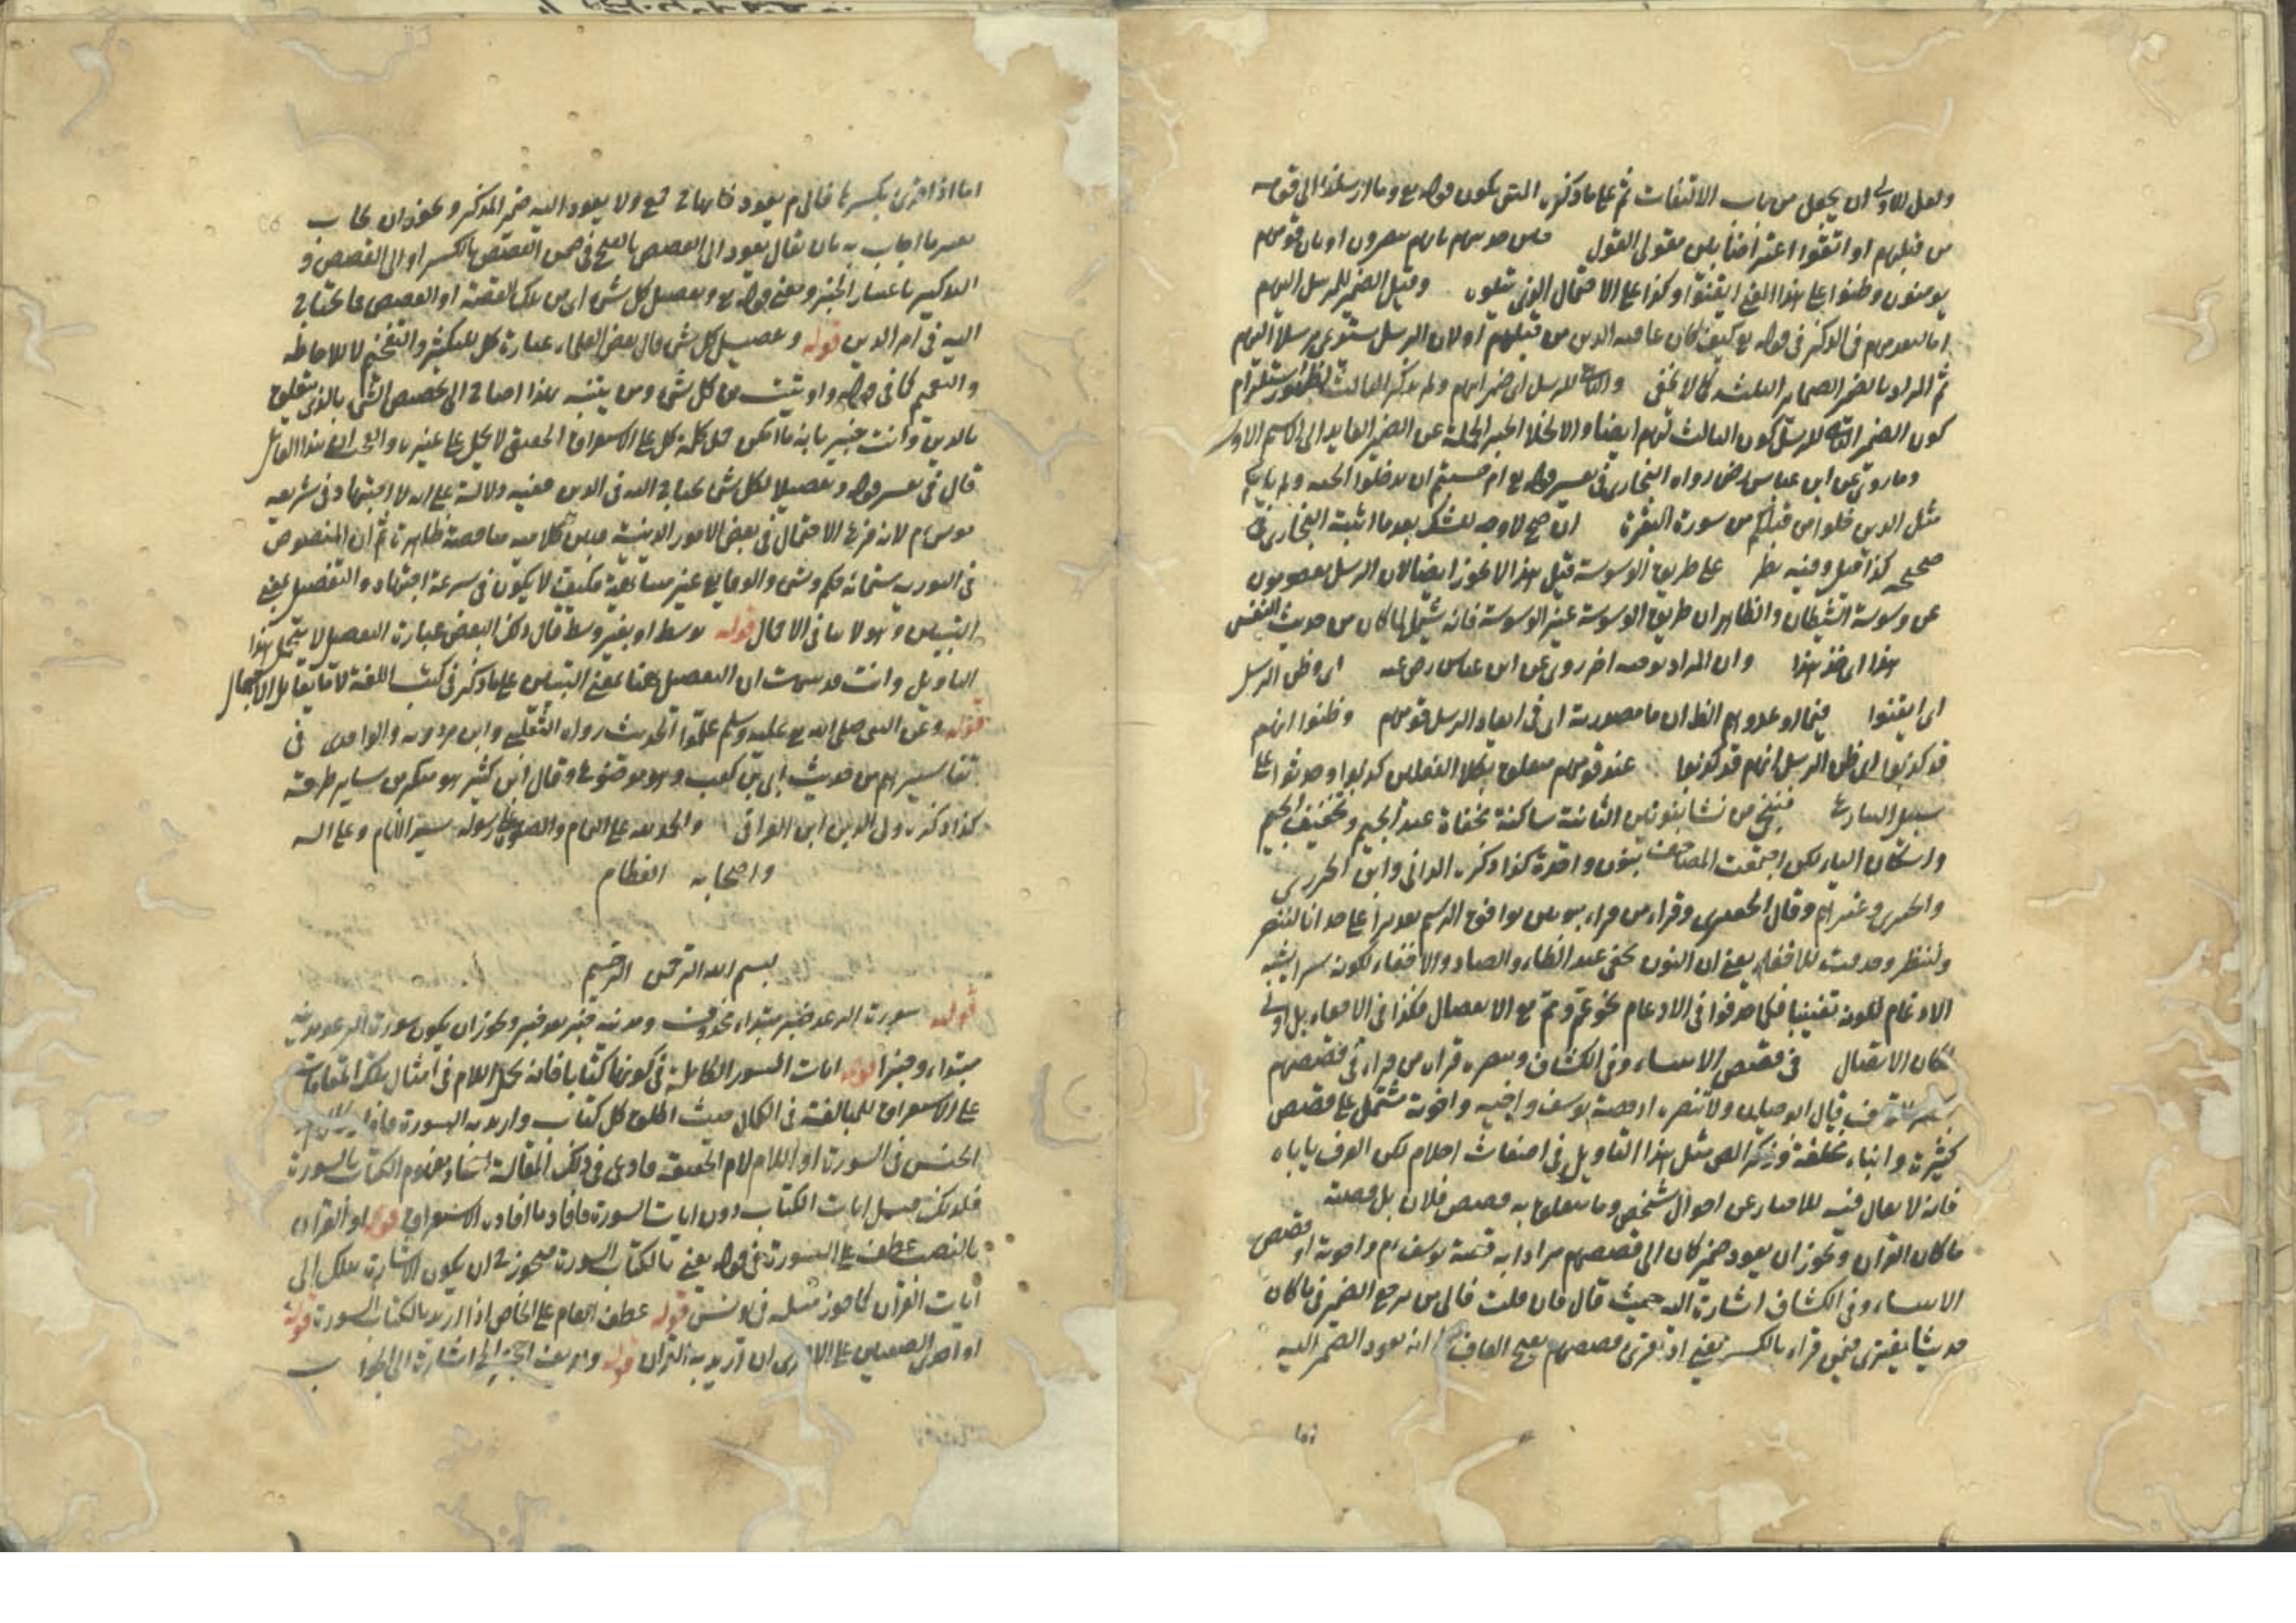 ولعل الاولى ان يجعل من باب الالتفات ثم على ما ذكره المتن يكون قوله تع وما ارسلنا الى قوله
من قبلهم او اتقوا اعتراضا بين مقولى القول من حديثهم بانهم ينصرون او بان قومهم
يومنون وظنوا على هذا المعنى ايقنوا وكذا على الاحتمال الذى يتلوه وقيل الضمير للمرسل اليهم
اما لبعدهم فى الذكر فى قوله تع كيف كان عاقبة الذين من قبلهم او لان الرسل يستدعى مرسلا اليهم
ثم المراد بالضمير الضماير الثلثة كما لا يخفى والثانى للرسل اى ضمير انهم ولم يذكر الثالث لظهور استلزام
كون الضمير الثانى للرسل كون الثالث لهم ايضا والا لخلا الخبر الجملة عن الضمير العايد الى الاسم الاول
وما روى عن ابن عباس رض رواه البخارى فى تفسير قوله تع ام حسبتم ان تدخلوا الجنة ولما ياتكم
مثل الذين خلوا من قبلكم من سورة البقرة ان صح لا وجه للشك بعد ما اثبته البخارى فى
صحيحه كذا قيل وفيه نظر على طريق الوسوسة قيل هذا لا يجوز ايضا لان الرسل معصومون
عن وسوسة الشيطان والظاهر ان طريق الوسوسة غير الوسوسة فانه يشمل لما كان من حديث النفس
هذا اى خذ هذا وان المراد به وجه اخر روى عن ابن عباس رضى عنه اى وظن الرسل
اى ايقنوا فيما اوعدوهم الظ ان ما مصدرية اى فى ايعاد الرسل قومهم وظنوا انهم
قد كذبوا اى ظن الرسل انهم قد كذبوا عند قومهم متعلق بكلا الفعلين كذبوا وحدثوا على
سبيل التنازع فننجى من نشا بنونين الثانية ساكنة مخفاة عند الجيم وتخفيف الجيم
واسكان الياء لكن اجتمعت المصاحف بنون واحدة كذا ذكره الدانى وابن الجزرى
والجعبرى وغيرهم وقال الجعبرى وقراءة من قراء بنونين يوافق الرسم تقديرا على حد انا لننصر
ولننظر وحذفت للاخفاء يعنى ان النون تخفى عند الظاء والصاد والاخفاء لكونه سرا يشبه
الادغام لكونه تغييبا فكما حذفوا فى الادغام نحو عم ومم مع الاتصال فكذا فى الاخفاء بل اولى
لمكان الاتصال فى قصص الانبياء وفى الكشاف وينصره قراءة من قراء فى قصصهم
بكسر القاف قال ابو حيان ولا تنصره اذ قصة يوسف وابيه واخوته مشتمل على قصص
كثيرة وانباء مختلفة وذكر القص مثل هذا التاويل فى اضغاث احلام لكن العرف ياباه
فانه لا يقال فيه للاخبار عن احوال شخص وما يتعلق به قصص فلان بل قصته
ما كان القران ويجوز ان يعود ضمير كان الى قصصهم مرادا به قصة يوسف م واخوته او قصص
الانبياء وفى الكشاف اشارة اليه حيث قال فان قلت فالى من يرجع الضمير فى ما كان
حديثا يفترى فيمن قراء بالكسر يعنى اذ قرئ قصصهم بفتح القاف انه يعود الضمير اليه
اما
اما اذا قرئ بكسرها فالى م يعود فانها ح جمع ولا يعود اليه ضمير المذكر ويجوز ان يجاب
بغير ما اجاب به بان يقال يعود الى القصص بالفتح فى ضمن القصص بالكسر او الى القصص و
التذكير باعتبار الخبر ومعنى قوله تع وتفصيل كل شئ اى من تلك القصة او القصص ما يحتاج
اليه فى امر الدين قوله وتفصيل كل شئ قال بعض العلماء عبارة كل للتكثير والتفخيم لا للاحاطة
والتعميم كما فى قوله واوتيت من كل شئ ومن يتنبه لهذا احتاج الى تخصيص الشئ بالذى يتعلق
بالدين وانت خبير بانه ما امكن حمل كلمة كل على الاستغراق الحقيقى لا يحمل على غيره والعجب ان هذا القائل
قال فى تفسير قوله وتفصيلا لكل شئ يحتاج اليه فى الدين ففيه دلالة على انه لا اجتهاد فى شريعة
موسى م لانه فرع الاحتمال فى بعض الامور الدينية فبين كلاميه مناقضة ظاهرة ثم ان المنصوص
فى التورية ستمائة حكم وشئ والوقايع غير متناهية فكيف لا يكون فى شرعه اجتهاد والتفصيل بمعنى
التبيين وهو لا ينافى الاجمال قوله بوسط او بغير وسط قال ذلك البعض عبارة التفصيل لا يتحمل هذا
التاويل وانت قد سمعت ان التفصيل هنا بمعنى التبيين على ما ذكر فى كتب اللغة لا ما يقابل الاجمال
قوله وعن النبى صلى الله تع عليه وسلم علموا الحديث رواه الثعلبى وابن مردويه والواحدى فى
تفاسيرهم من حديث ابى بن كعب وهو موضوع وقال ابن كثير هو منكر من ساير طرقه
كذا ذكره ولى الدين ابن العراقى والحمد لله على التمام والصلوة على رسوله سيد الانام وعلى اله
واصحابه العظام
بسم الله الرحمن الرحيم
قوله سورة الرعد خبر مبتداء محذوف ومدنية خبر بعد خبر ويجوز ان يكون سورة الرعد مدنية
مبتداء وخبرا قوله ايات السورة الكاملة فى كونها كتابا فانه يحمل اللام فى امثال تلك المقامات
على الاستغراق للمبالغة فى الكمال حيث اطلق كل كتاب واريد به السورة
الجنس فى السورة او اللام لام الحقيقة وادى فى ذلك المقالة اتحاد مفهوم الكتاب بالسورة
فلذلك قيل ايات الكتاب دون ايات السورة فافاد ما افاده الاستغراق قوله او القران
بالنصب عطف على السورة فى قوله يعنى بالكتاب السورة فيجوز ح ان يكون الاشارة بتلك الى
ايات القران كما جوز مثله فى يونس قوله عطف العام على الخاص اذا اريد بالكتاب السورة قوله
او احدى الصفتين على الاخرى ان اريد به القران قوله وتعريف الخبر الى اشارة الى الجواب